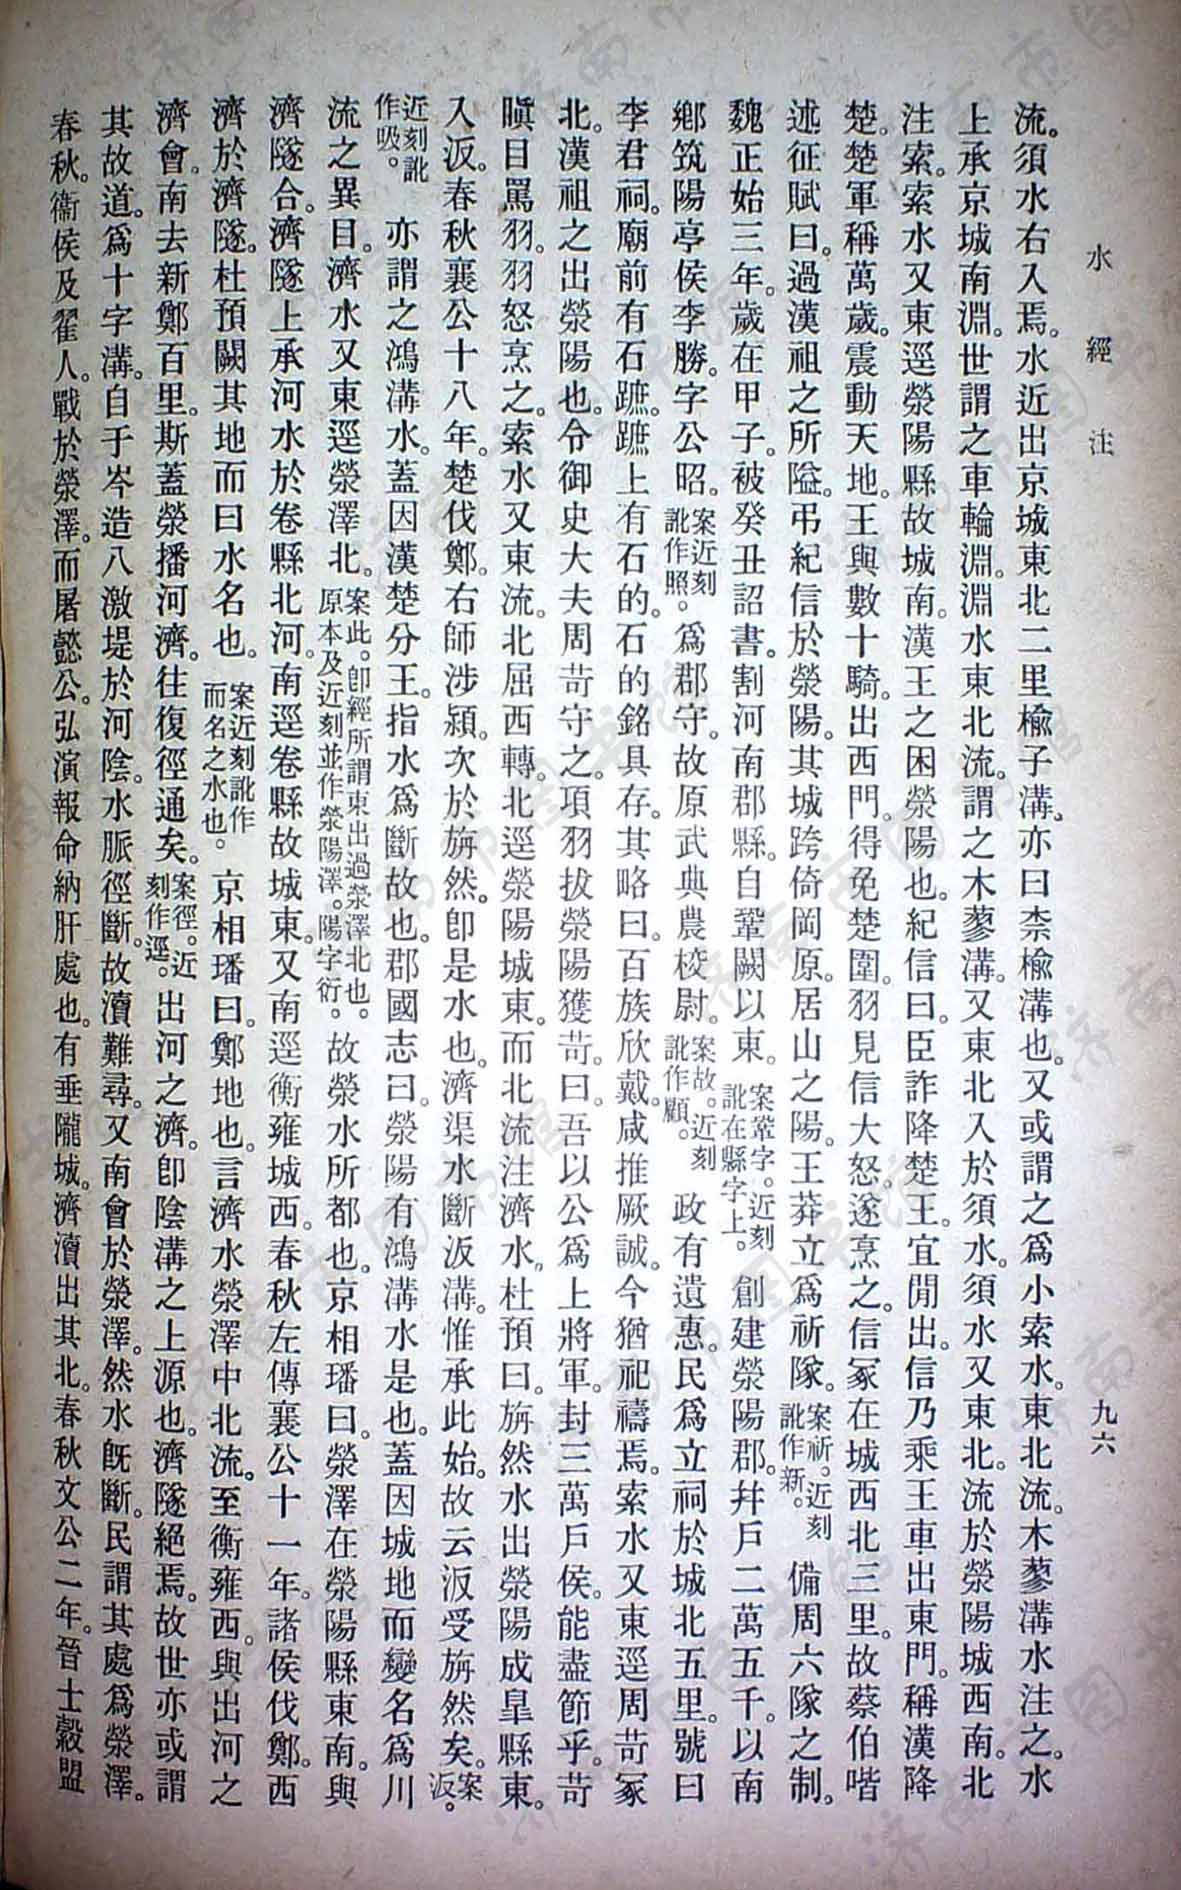 水經注
九六
流。須水右入焉。水近出京城東北二里榆子溝。亦曰柰榆溝也。又或謂之爲小索水。東北流。木蓼溝水注之。水
上承京城南淵。世謂之車輪淵。淵水東北流。謂之木蓼溝。又東北入於須水。須水又東北。流於滎陽城西南。北
注索。索水又東逕滎陽縣故城南。漢王之困滎陽也。紀信曰。臣詐降楚王。宜閒出。信乃乘王車出東門。稱漢降
楚。楚軍稱萬歲。震動天地。王與數十騎。出西門。得免楚圍。羽見信大怒。遂烹之。信冢在城西北三里。故蔡伯喈
述征賦曰。過漢祖之所隘。弔紀信於滎陽。其城跨倚岡原。居山之陽。王莽立爲祈隊。案祈。近刻訛作新。備周六隊之制。
魏正始三年。歲在甲子。被癸丑詔書。割河南郡縣。自鞏闕以東。案鞏字。近刻訛在縣字上。創建滎陽郡。幷戶二萬五千。以南
鄉筑陽亭侯李勝。字公昭。案近刻訛作照。爲郡守。故原武典農校尉。案故。近刻訛作顧。政有遺惠。民爲立祠於城北五里。號曰
李君祠。廟前有石蹠。蹠上有石的。石的銘具存。其略曰。百族欣戴。咸推厥誠。今猶祀禱焉。索水又東逕周苛冢
北。漢祖之出滎陽也。令御史大夫周苛守之。項羽拔滎陽獲苛。曰。吾以公爲上將軍。封三萬戶侯。能盡節乎。苛
瞋目罵羽。羽怒烹之。索水又東流。北屈西轉。北逕滎陽城東。而北流注濟水。杜預曰。旃然水出滎陽成皐縣東。
入汳。春秋襄公十八年。楚伐鄭。右師涉潁。次於旃然。卽是水也。濟渠水斷汳溝。惟承此始。故云汳受旃然矣。案汳。
近刻訛作吸。亦謂之鴻溝水。蓋因漢楚分王。指水爲斷故也。郡國志曰。滎陽有鴻溝水是也。蓋因城地而變名爲川
流之異目。濟水又東逕滎澤北。案此。卽經所謂東出過滎澤北也。原本及近刻並作滎陽澤。陽字衍。故滎水所都也。京相璠曰。滎澤在滎陽縣東南。與
濟隧合。濟隧上承河水於卷縣北河。南逕卷縣故城東。又南逕衡雍城西。春秋左傳襄公十一年。諸侯伐鄭。西
濟於濟隧。杜預闕其地而曰水名也。案近刻訛作而名之水也。京相璠曰。鄭地也。言濟水滎澤中北流。至衡雍西。與出河之
濟會。南去新鄭百里。斯蓋滎播河濟。往復徑通矣。案徑。近刻作逕。出河之濟。卽陰溝之上源也。濟隧絕焉。故世亦或謂
其故道。爲十字溝。自于岑造八激堤於河陰。水脈徑斷。故瀆難尋。又南會於滎澤。然水旣斷。民謂其處爲滎澤。
春秋。衞侯及翟人。戰於滎澤。而屠懿公。弘演報命納肝處也。有垂隴城。濟瀆出其北。春秋文公二年。晉士縠盟